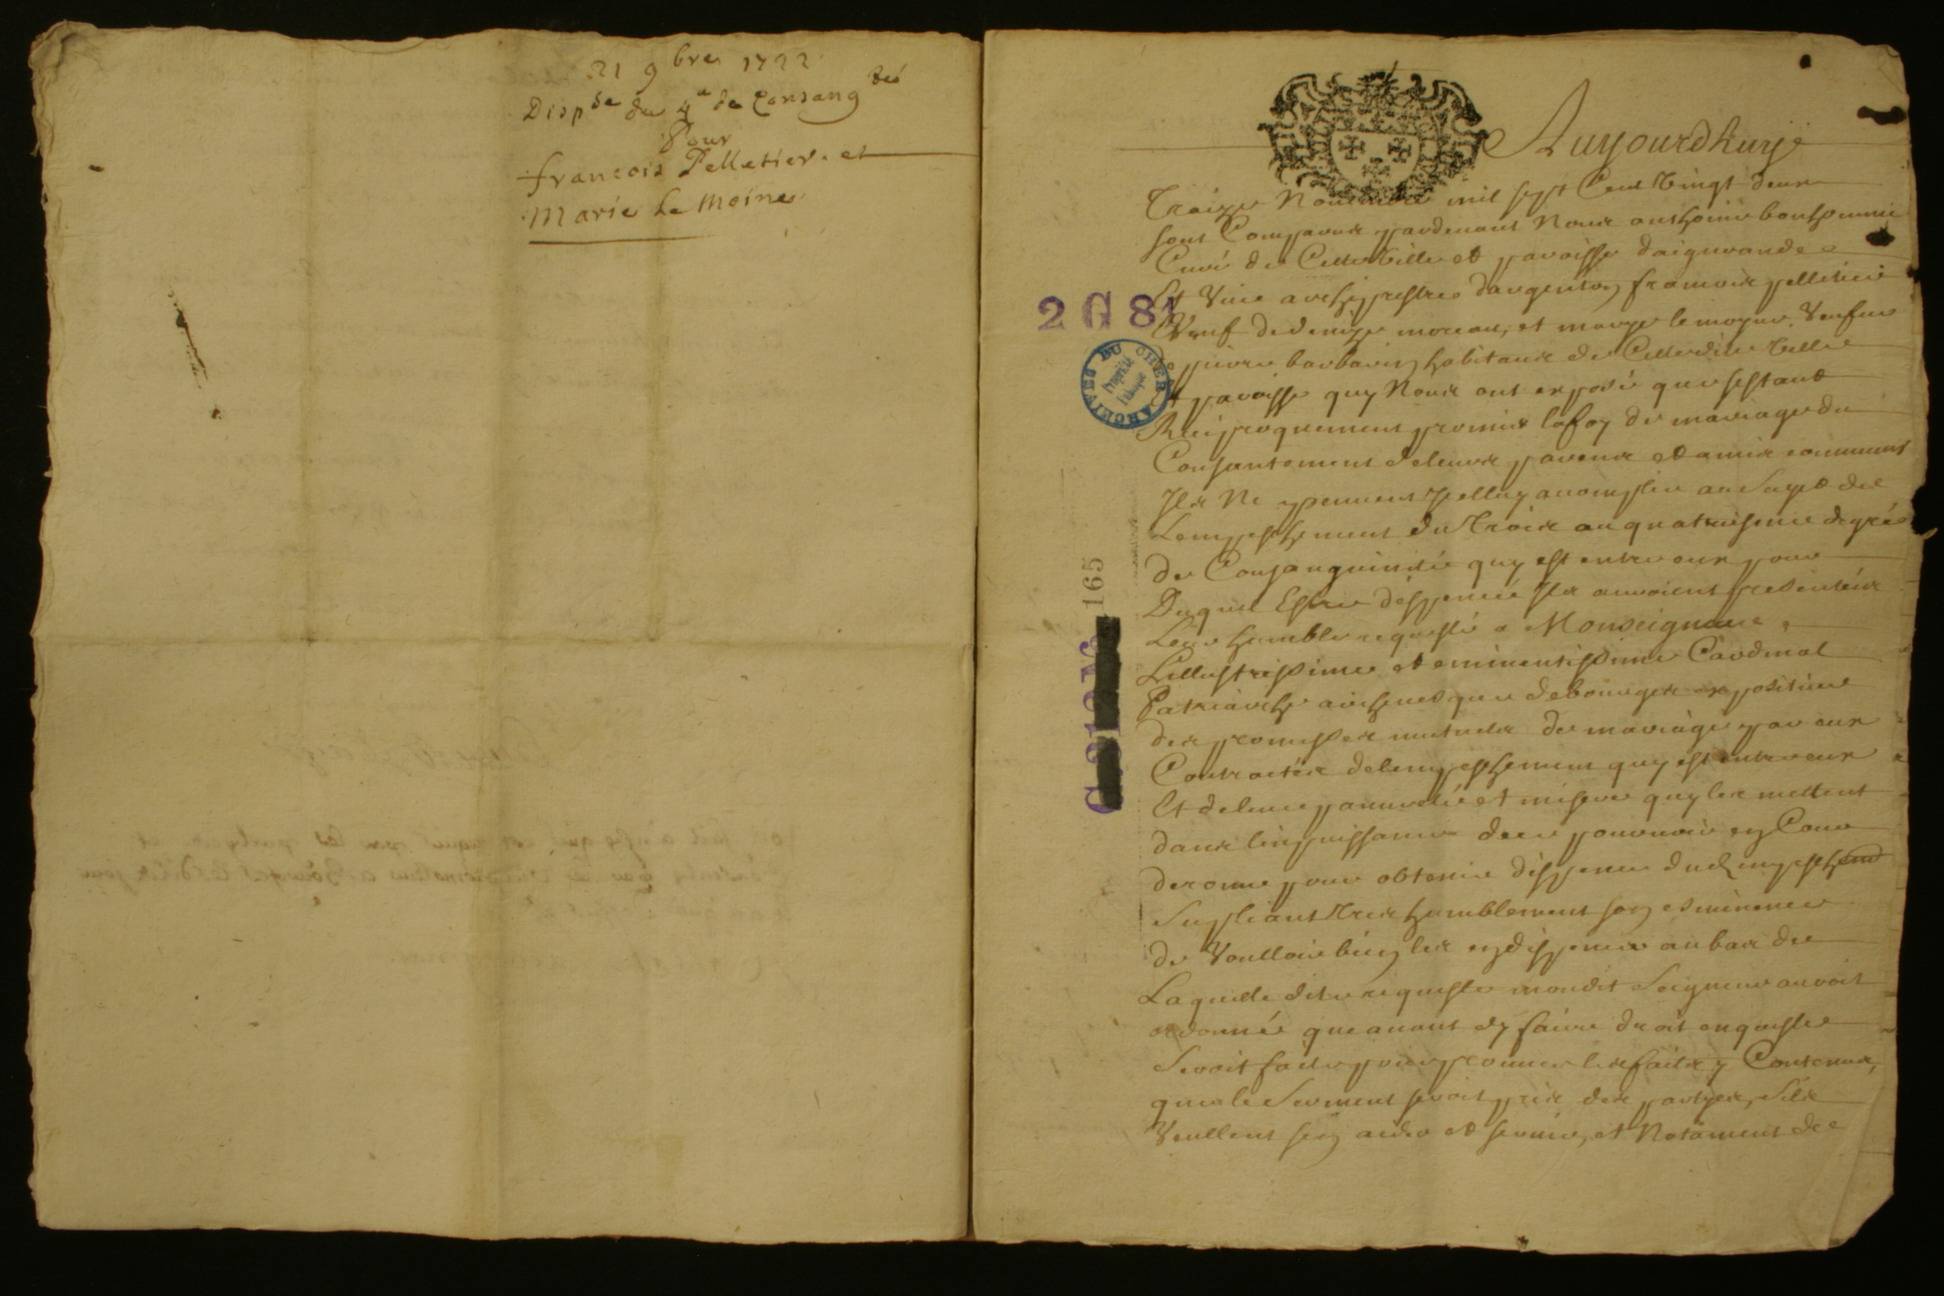 21 9bre 1722
Dispse du 4e de Consang té
Pour
francois Pelletier et
Marie Le Moine
Aujourdhuy
Traize Novembre mil sept Cent Vingt deux
sont Comparus pardevant Nous anthoine bonhomme
Curé de Cette Ville et paroisse daigurande
Et Vice archiprestre dargenton francois pelletier
Veuf de denize moreau, et marye le moyne Veufve
pierre barbarin habitans de Cettedite Ville
Et paroisse quy Nous ont exposée que sestant
Reciproquement promis la foy de mariage du
Consantement de leurs parens et amis communs
Ils Ne peuvent Icelluy accomplir au Sujet de
Lempeschement du Trois au quatriesme degré
de Consanguinité quy est entre eux pour
Duquel Estre dispencé Ils auroient presentéz
Leur humble requeste a Monseigneur
Lillustrissime et eminentissime Cardinal
Patriarche archevesque de bourges expositive
des promesses mutuelles de mariage par eux
Contractés de lempeschement quy est entre eux
Et de leur pauvreté et misere quy les mettent
dans linpuissance de se pourvoir en Cour
de rome pour obtenir dispence dud empeschemt
Supliant Tres humblement son esminence
de Voulloir bien les en dispencer au bas de
Laquelle dite requeste mondit Seigneur auroit
ordonné que avant dy faire droit enqueste
Seroit faite pour prouver les faits y Contenus,
que le Serment seroit pris des partyes, Sils
Veullent sen aider et servir, et Notament de
2 G 81
ARCHIVES DU CHER
Propriété
Publique
165